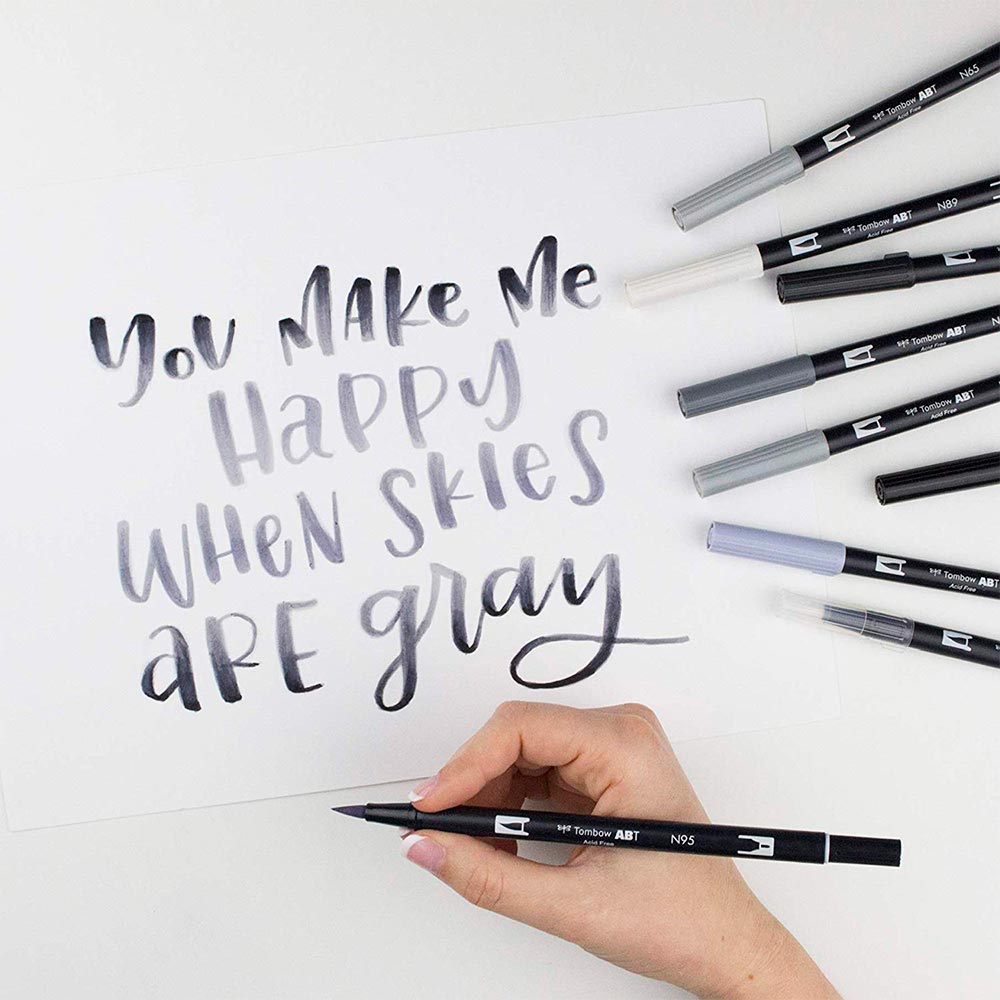 YOU MAKE ME
Happy
WHEN SKIES
ARE gray
Tombow ABT N65
Acid Free
Tombow ABT N89
Acid Free
Tombow ABT
Acid Free
Tombow ABT
Acid Free
Tombow ABT
Acid Free
Tombow ABT N95
Acid Free